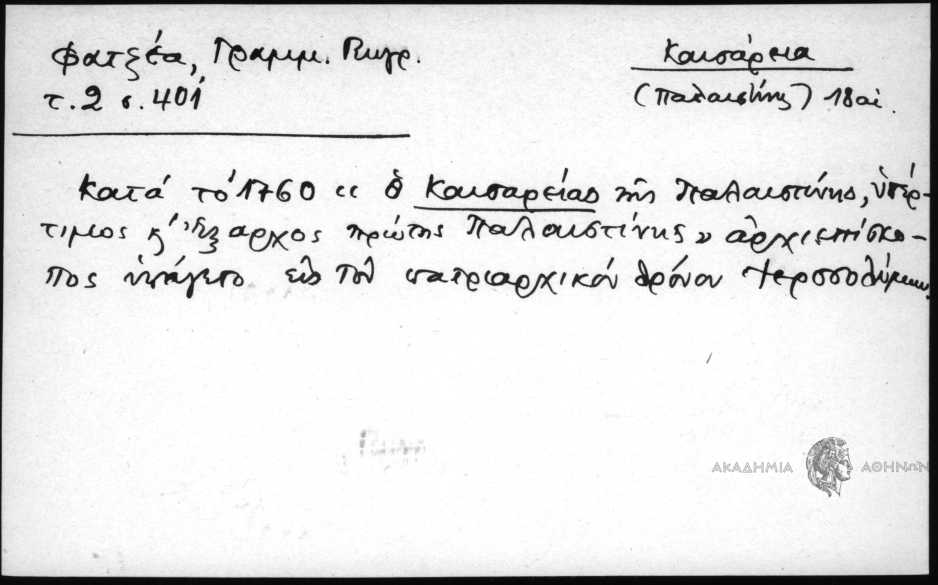 Φατζέα, Γραμμ. Πυγρ.
τ. 2 σ. 401
Καισάρεια
(Παλαιστίνης) 18 αἰ.
Κατά τό 1760 «ὁ Καισαρείας τῆς Παλαιστίνης, ὑπέρ-
τιμος κ' ἔξαρχος πρώτης Παλαιστίνης» ἀρχιεπίσκο-
πος ὑπάγετο εἰς τόν πατριαρχικόν θρόνον Ἱεροσολύμων.
ΑΚΑΔΗΜΙΑ ΑΘΗΝΩΝ